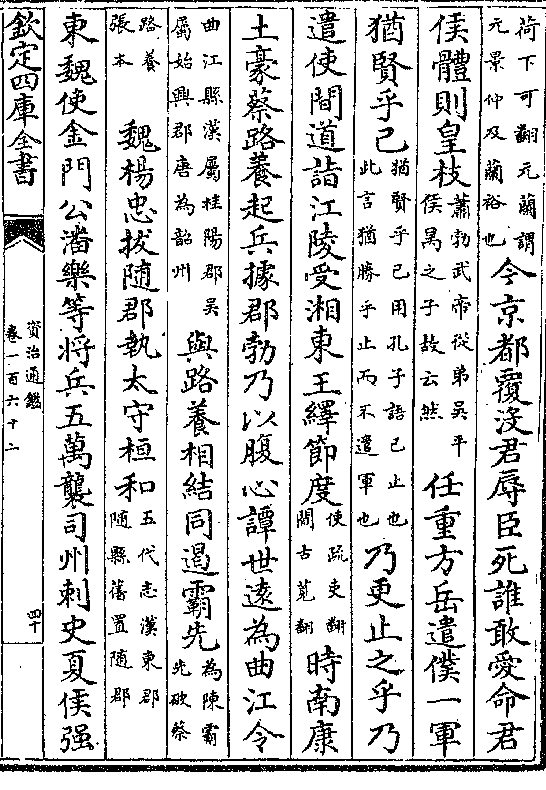 荷下可翻元蘭謂
元景仲及蘭裕也
今京都覆沒君辱臣死誰敢愛命君
侯體則皇枝
蕭勃武帝從弟吳平
侯昺之子故云然
任重方岳遣僕一軍
猶賢乎已
猶賢乎已用孔子語已止也
此言猶勝乎止而不遣軍也
乃更止之乎乃
遣使間道詣江陵受湘東王繹節度
使疏吏翻
間古莧翻
時南康
土豪蔡路養起兵據郡勃乃以腹心譚世遠為曲江令
曲江縣漢屬桂陽郡吳
屬始興郡唐為韶州
與路養相結同遏霸先
為陳霸
先破蔡
路養
張本
魏楊忠拔隨郡執太守桓和
五代志漢東郡
隨縣舊置隨郡
東魏使金門公潘樂等將兵五萬襲司州刺史夏侯强
欽定四庫全書
資治通鑑
卷一百六十二
四十